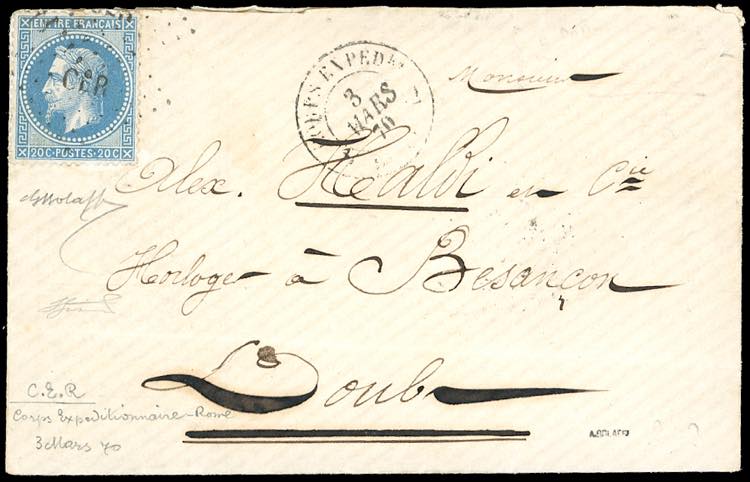 EMPIRE FRANÇAIS
CER
20C·POSTES·20C
CORPS EXPED
3
MARS
70
Monsieur
Alex. Haldi et Cie
Horloger à Besançon
Doubs
C.E.R
Corps Expeditionnaire-Rome
3 Mars 70